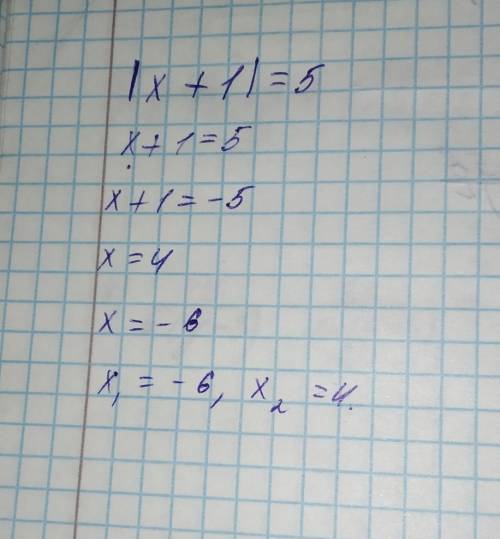 |x + 1| = 5
x + 1 = 5
x + 1 = -5
x = 4
x = - 6
x₁ = - 6, x₂ = 4.